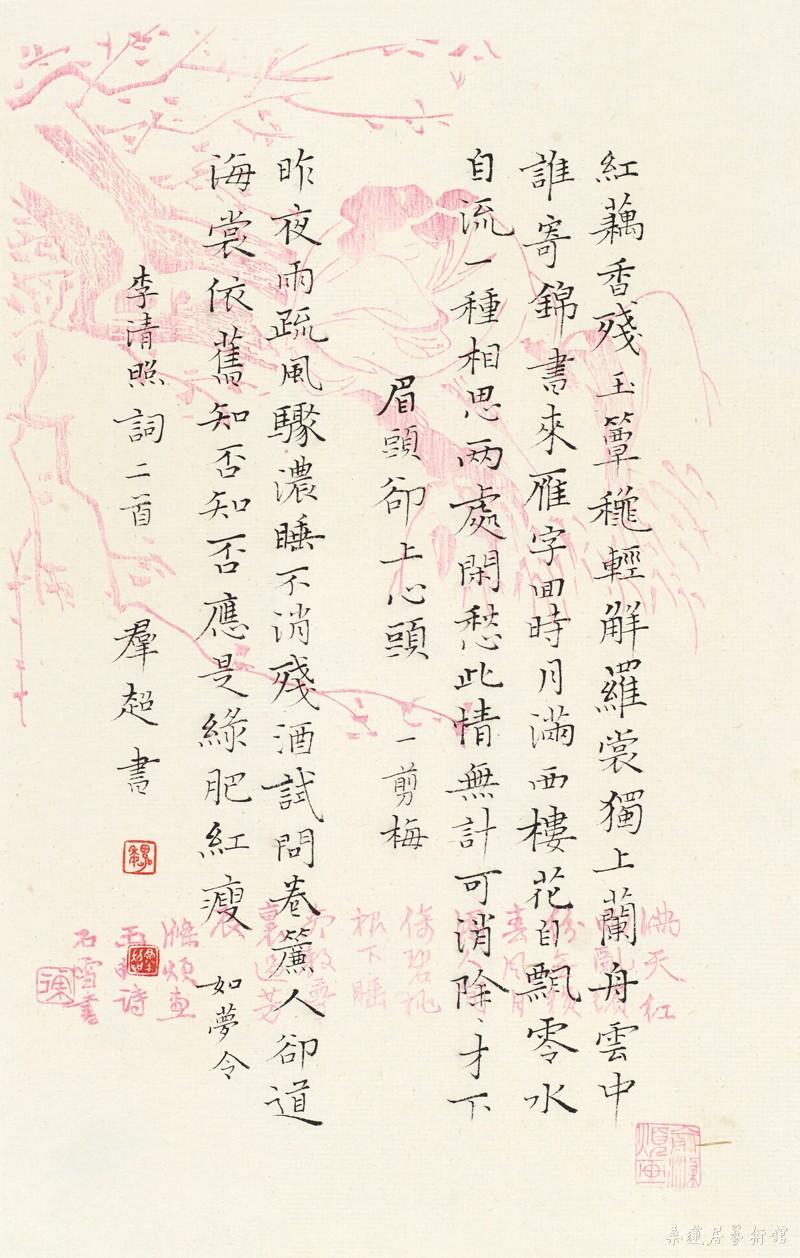 紅藕香殘玉簟穐輕解羅裳獨上蘭舟雲中
誰寄錦書來雁字回時月滿西樓花自飄零水
自流一種相思兩處閑愁此情無計可消除〻才下
眉頭卻上心頭 一剪梅
昨夜雨疏風驟濃睡不消殘酒試問卷簾人卻道
海裳依舊知否知否應是綠肥紅瘦 如夢令
李清照詞二首 羣超書
滿天紅
倚碧桃
松下睡
滌煩畫
石雪書
俞滌煩畫
桑蓮居藝術館